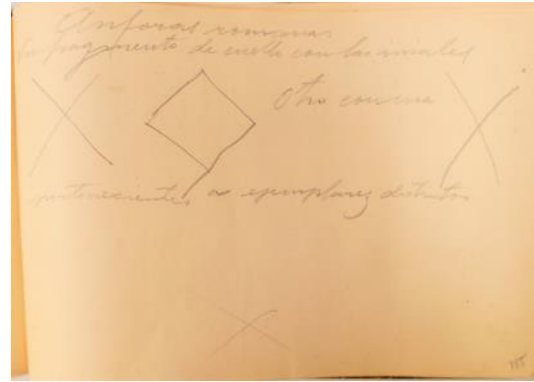 Anforas romanas
Un fragmento de cuello con las iniales
Otro con una
pertenecientes a ejemplares distintos
185